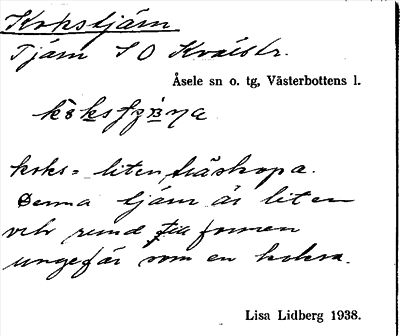 Kokstjärn
Tjärn S O Kvälstr.
Åsele sn o. tg, Västerbottens l.
koks = liten träskopa.
Denna tjärn är liten
och rund till formen
ungefär som en koksa.
Lisa Lidberg 1938.